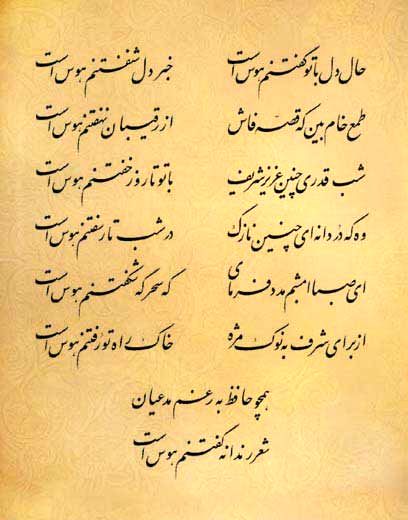 حال دل با تو گفتنم هوس است خبر دل شنفتنم هوس است
طمع خام بین که قصه فاش از رقیبان نهفتنم هوس است
شب قدری چنین عزیز شریف با تو تا روز خفتنم هوس است
وه که دردانه‌ای چنین نازک در شب تار سفتنم هوس است
ای صبا امشبم مدد فرمای که سحرگه شکفتنم هوس است
از برای شرف به نوک مژه خاک راه تو رفتنم هوس است
همچو حافظ به رغم مدعیان
شعر رندانه گفتنم هوس است